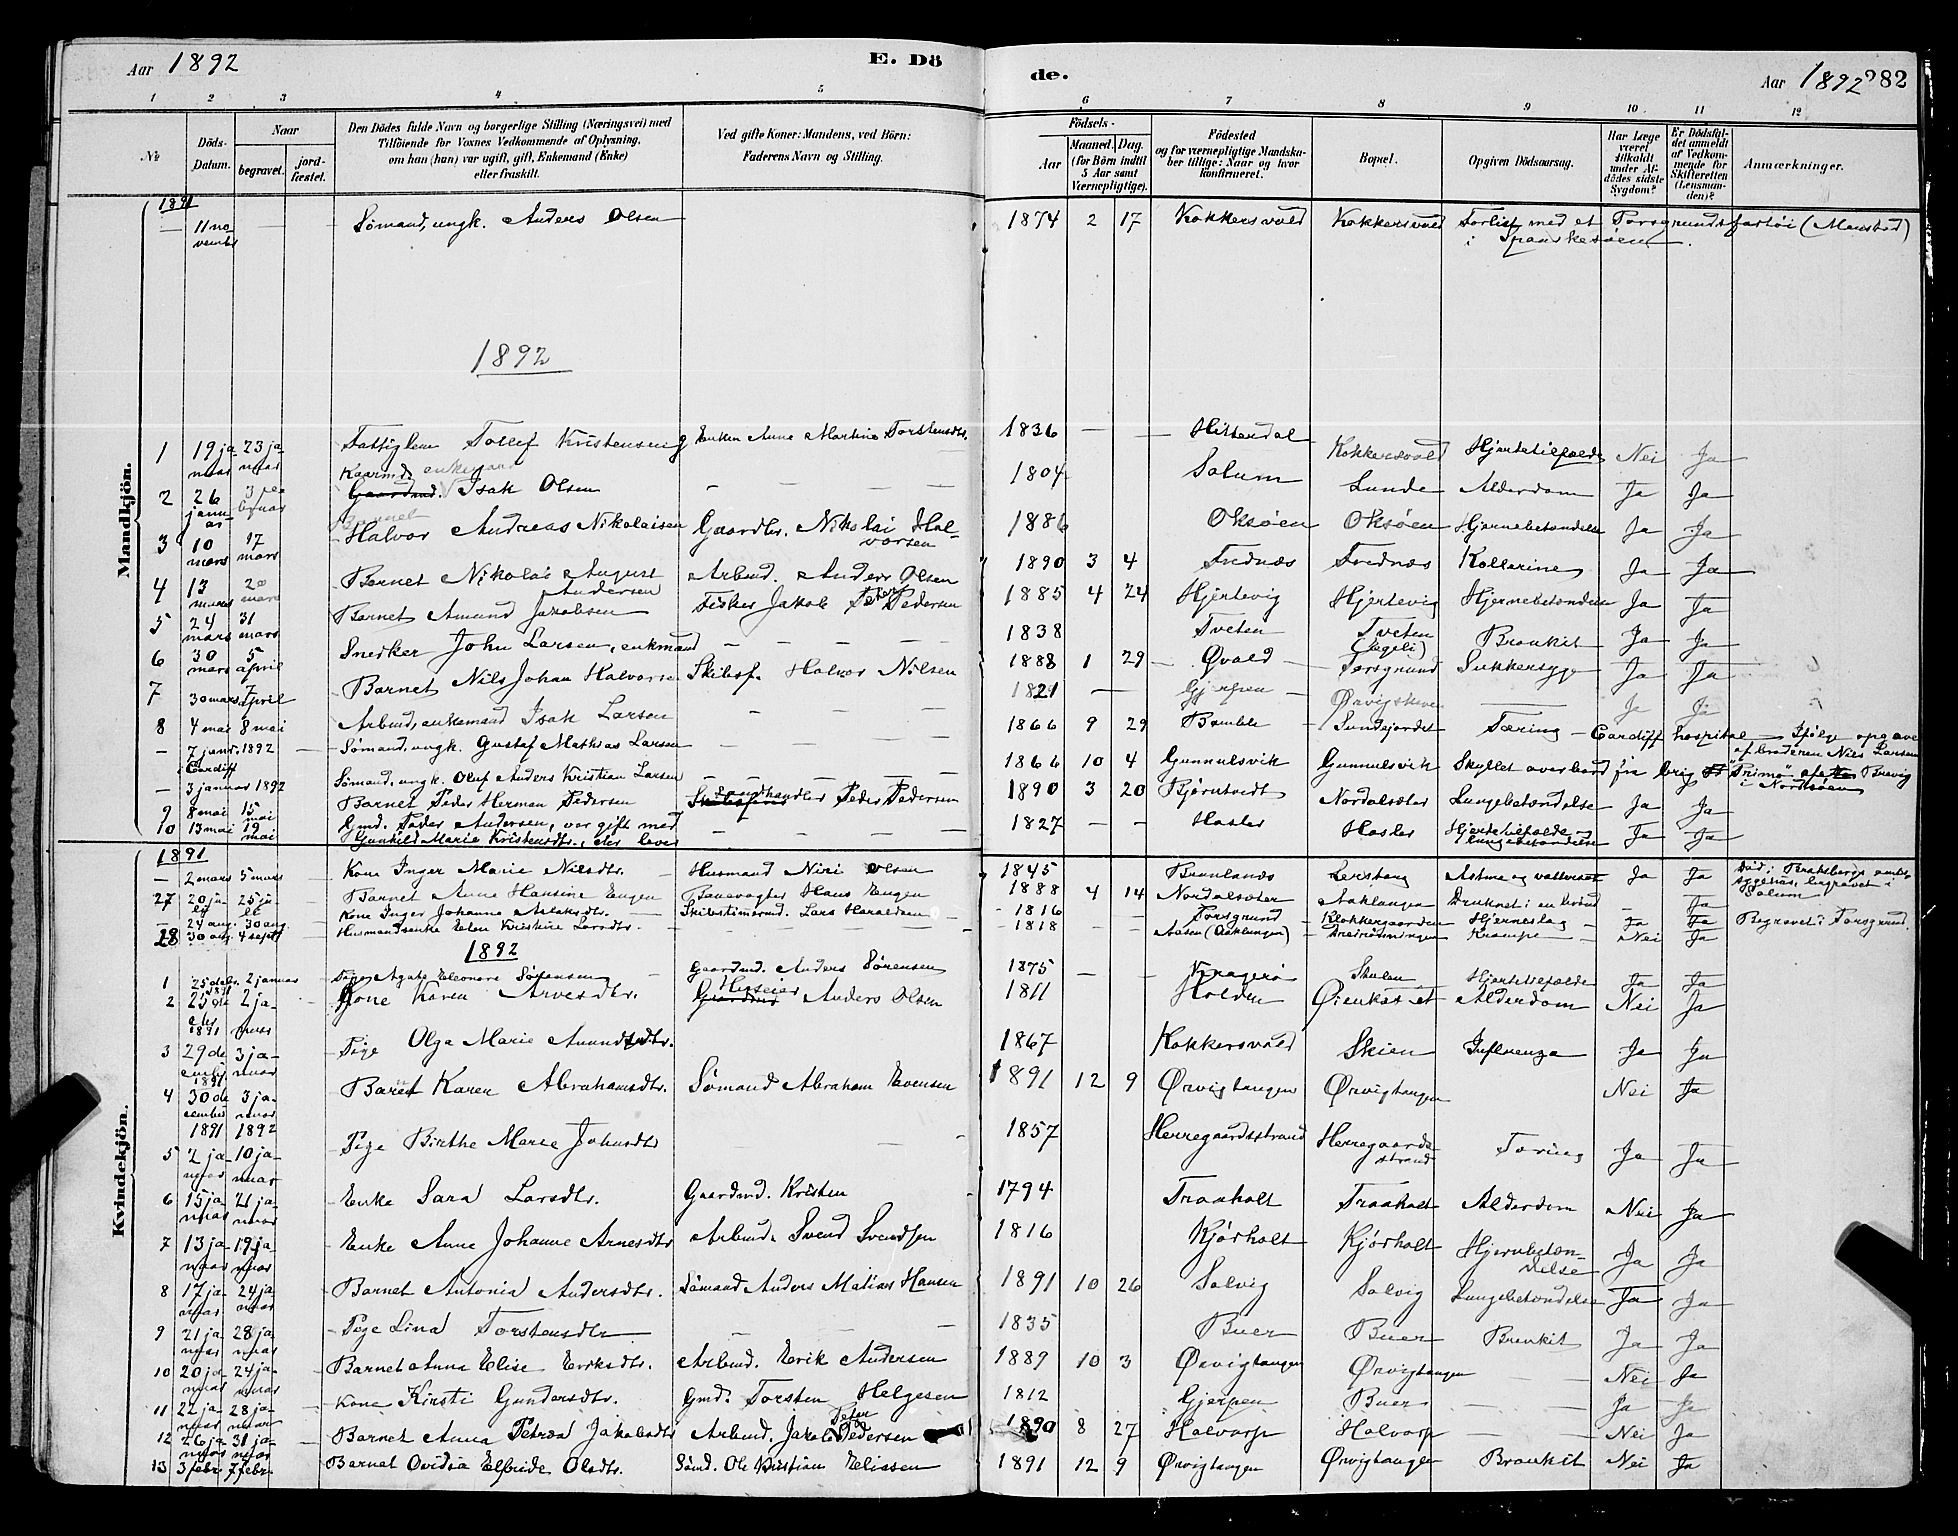 Aar 1892 E. Dö de. Aar 1892 282
1 2 3 4 5 6 7 8 9 10 11 12
№ Döds-Datum. Naar begravet. jordfæstet. Den Dödes fulde Navn og borgerlige Stilling (Næringsvei) med Tilföiende for Voxnes Vedkommende af Oplysning, om han (hun) var ugift, gift, Enkemand (Enke) eller fraskilt. Ved gifte Koner: Mandens, ved Börn: Faderens Navn og Stilling. Födsels- Aar Maaned. Dag. (for Börn indtil 5 Aar samt Værnepligtige). Födested og for værnepligtige Mandskaber tillige: Naar og hvor konfirmeret. Bopæl. Opgiven Dödsaarsag. Har Læge været tilkaldt under Afdödes sidste Sygdom? Er Dödsfaldet anmeldt af Vedkommende for Skifteretten (Lensmanden)? Anmærkninger.
Mandkjön.
1891
— 11 november — Sømand, ungk. Anders Olsen 1874 2 17 Kokkersvold Kokkersvold Forlist med et Porsgrundsfartøi (Menstad) i Spanskesøen.
1892
1 19 januar 23 januar Fattiglem Tollef Kristensen Enken Anne Martine Torstensdtr. 1836 — — Hitterdal Kokkersvold Hjertetilfælde Nei Ja
2 26 januar 3 februar Kaarmd. enkemand Gaardmd. Isak Olsen — — — 1804 Solum Lunde Alderdom Ja Ja
3 10 mars 17 mars Barnet Halvor Andreas Nikolaisen Gaardbr. Nikolai Halvorsen 1886 Oksøen Oksøen Hjernebetændelse Ja Ja
4 13 mars 20 mars Barnet Nikolai August Andersen Arbmd. Anders Olsen 1890 3 4 Frednæs Frednæs Kollerine Ja Ja
5 24 mars 31 mars Barnet Amund Jakobsen Fisker Jakob Peter Pedersen 1885 4 24 Hjertevig Hjertevig Hjernebetændelse Ja Ja
6 30 mars 5 april Snedker John Larsen, enkmand — — — 1838 Tveten Tveten Bronkit Ja Ja
7 30 mars 7 april Barnet Nils Johan Halvorsen Skibsf. Halvor Nilsen 1888 1 29 Øvald Porsgrund Sukkersyge Ja Ja
8 4 mai 8 mai Arbmd, enkemand Isak Larsen — — — 1821 — Gjerpen Ørvigskoven — Ja Ja
— 7 janr. 1892 Cardiff — Sømand, ungk. Gustaf Mathias Larsen — — — 1866 9 29 Bamble Sundejordet Tæring Cardiff hospital — Ifølge opgave af broderen Nils Larsen
— 3 januar 1892 Sømand, ungk. Oluf Anders Kristian Larsen — — — 1866 10 4 Gunnulsvik Gunnulsvik Skyllet overbord fra brig "Primo" af Brevig i Nordsøen
9 8 mai 15 mai Barnet Peder Herman Pedersen Skibsfører Landhandler Peder Pedersen 1890 3 20 Bjørntvedt Nordalsæter Lungebetændelse Ja Ja
10 13 mai 19 mai Gmd. Peder Andersen, var gift med Gunhild Marie Kristensdtr., der lever — — — 1827 — — Hasler Hasler Hjertetilfælde og Lungebetændelse Ja Ja
Kvindekjön.
1891
— 2 mars 5 mars Kone Inger Marie Nilsdtr. Husmand Niri Olsen 1845 Brænlanæs Lerstang Astma og vattersot Ja Ja Død i Bratsbergs amts sygehus, begravet i Solum
27 20 juli 25 juli Barnet Anne Hansine Engen Banevogter Hans Engen 1888 4 14 Nordalsæter Aaklungen Druknet i en brønd — Ja
— 24 aug. 30 aug. Kone Inger Johanne Aslaksdtr. — Skibstimmrmd. Lars Haraldsen 1816 — — Porsgrund Klokkergaarden Hjerneslag Ja Ja Begravet i Porsgrund.
28 30 aug. 4 sept. Husmandsenke Elen Kristine Larsdtr. — — — 1818 — — Aasen (Aaklungen) Krampe — Nei Ja
1892
1 25 decbr. 1891 2 januar Pige Agate Eleonore Sørensen Gaardmd. Anders Sørensen 1875 — — Kragerø Skulen Hjertetilfælde Ja Ja
2 25 december 1891 2 januar Kone Karen Arvesdtr. Gaardmd Huseier Anders Olsen 1811 Holden Øienkast et Alderdom Nei Ja
3 29 december 1891 3 januar Pige Olga Marie Amundsdtr. 1867 Kokkersvold Skien Influenza Ja Ja
4 30 december 1891 3 januar 1892 Barnet Karen Abrahamsdtr. Sømand Abraham Evensen 1891 12 9 Ørvigtangen Ørvigtangen Nei Ja
5 2 januar 10 januar Pige Birthe Marie Johnsdtr — 1857 Herregaardsstrand Herregaardsstrand Tæring Ja Ja
6 15 januar 21 januar Enke Sara Larsdtr. Gaardmd. Kristen 1794 Traaholt Traaholt Alderdom Nei Ja
7 13 januar 19 januar Enke Anne Johanne Arnesdtr Arbmd. Svend Svendsen 1816 Kjørholt Kjørholt Hjernebetændelse Ja Ja
8 17 januar 24 januar Barnet Antonia Andersdtr. Sømand Anders Matias Hansen 1891 10 26 Solvig Solvig Lungebetændelse Ja Ja
9 21 januar 28 januar Pige Lina Torstensdtr — — 1835 Buer Buer Bronkit Ja Ja
10 20 januar 24 januar Barnet Anna Elise Eriksdtr. Arbmd. Erik Andersen 1889 10 3 Ørvigtangen Ørvigtangen — — Nei Ja
11 22 januar 28 januar Kone Kirsti Gundersdtr. Gmd. Torsten Helgesen 1812 Gjerpen Buer — — Ja Ja
12 26 januar 31 januar Barnet Anna Petrea Jakobsdtr Arbmd. Jakob Peter Pedersen 1890 8 27 Halvarp Halvarp — — Nei Ja
13 3 febr. 7 febr. Barnet Ovidia Elfride Olsdtr. Sømd. Ole Kristian Eliassen 1891 12 9 Ørvigtangen Ørvigtangen Bronkit Nei Ja